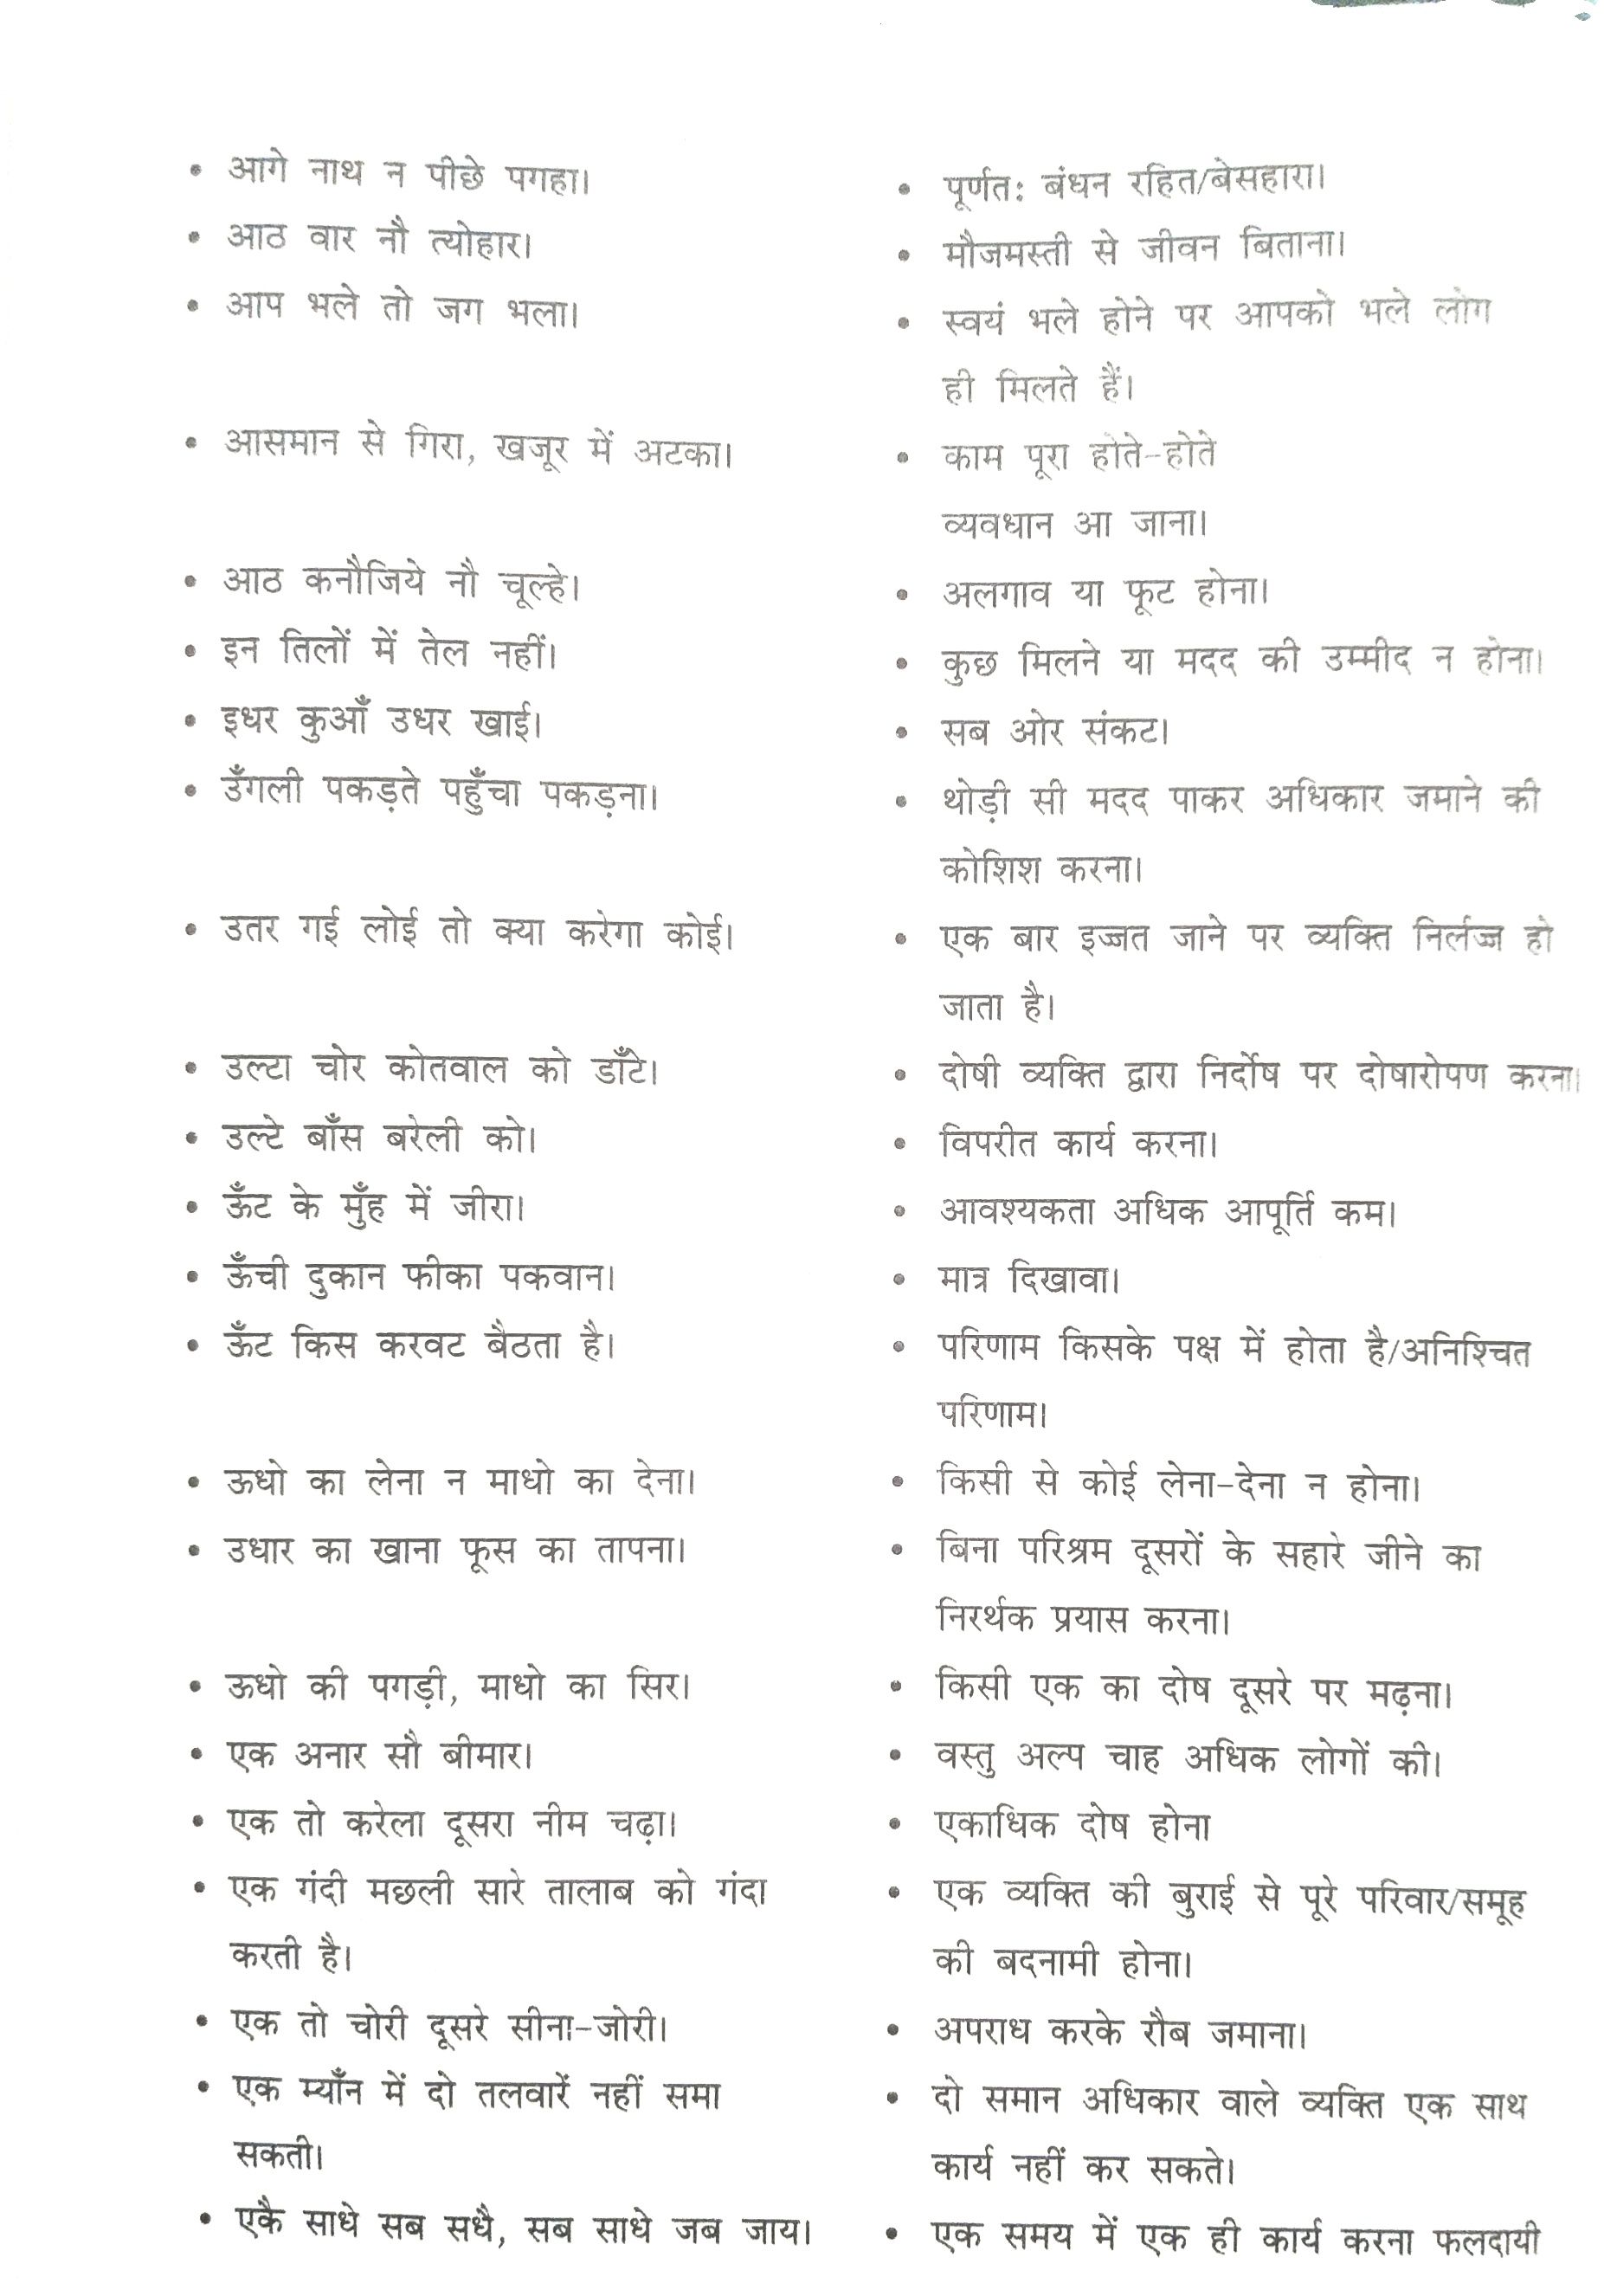 • आगे नाथ न पीछे पगहा।
• पूर्णत: बंधन रहित/बेसहारा।
• आठ वार नौ त्योहार।
• मौजमस्ती से जीवन बिताना।
• आप भले तो जग भला।
• स्वयं भले होने पर आपको भले लोग
ही मिलते हैं।
• आसमान से गिरा, खजूर में अटका।
• काम पूरा होते-होते
व्यवधान आ जाना।
• आठ कनौजिये नौ चूल्हे।
• अलगाव या फूट होना।
• इन तिलों में तेल नहीं।
• कुछ मिलने या मदद की उम्मीद न होना।
• इधर कुआँ उधर खाई।
• सब ओर संकट।
• उँगली पकड़ते पहुँचा पकड़ना।
• थोड़ी सी मदद पाकर अधिकार जमाने की
कोशिश करना।
• उतर गई लोई तो क्या करेगा कोई।
• एक बार इज्जत जाने पर व्यक्ति निर्लज्ज हो
जाता है।
• उल्टा चोर कोतवाल को डाँटे।
• दोषी व्यक्ति द्वारा निर्दोष पर दोषारोपण करना।
• उल्टे बाँस बरेली को।
• विपरीत कार्य करना।
• ऊँट के मुँह में जीरा।
• आवश्यकता अधिक आपूर्ति कम।
• ऊँची दुकान फीका पकवान।
• मात्र दिखावा।
• ऊँट किस करवट बैठता है।
• परिणाम किसके पक्ष में होता है/अनिश्चित
परिणाम।
• ऊधो का लेना न माधो का देना।
• किसी से कोई लेना-देना न होना।
• उधार का खाना फूस का तापना।
• बिना परिश्रम दूसरों के सहारे जीने का
निरर्थक प्रयास करना।
• ऊधो की पगड़ी, माधो का सिर।
• किसी एक का दोष दूसरे पर मढ़ना।
• एक अनार सौ बीमार।
• वस्तु अल्प चाह अधिक लोगों की।
• एक तो करेला दूसरा नीम चढ़ा।
• एकाधिक दोष होना
• एक गंदी मछली सारे तालाब को गंदा
करती है।
• एक व्यक्ति की बुराई से पूरे परिवार/समूह
की बदनामी होना।
• एक तो चोरी दूसरे सीना-जोरी।
• अपराध करके रौब जमाना।
• एक म्याँन में दो तलवारें नहीं समा
सकती।
• दो समान अधिकार वाले व्यक्ति एक साथ
कार्य नहीं कर सकते।
• एकै साधे सब सधै, सब साधे जब जाय।
• एक समय में एक ही कार्य करना फलदायी